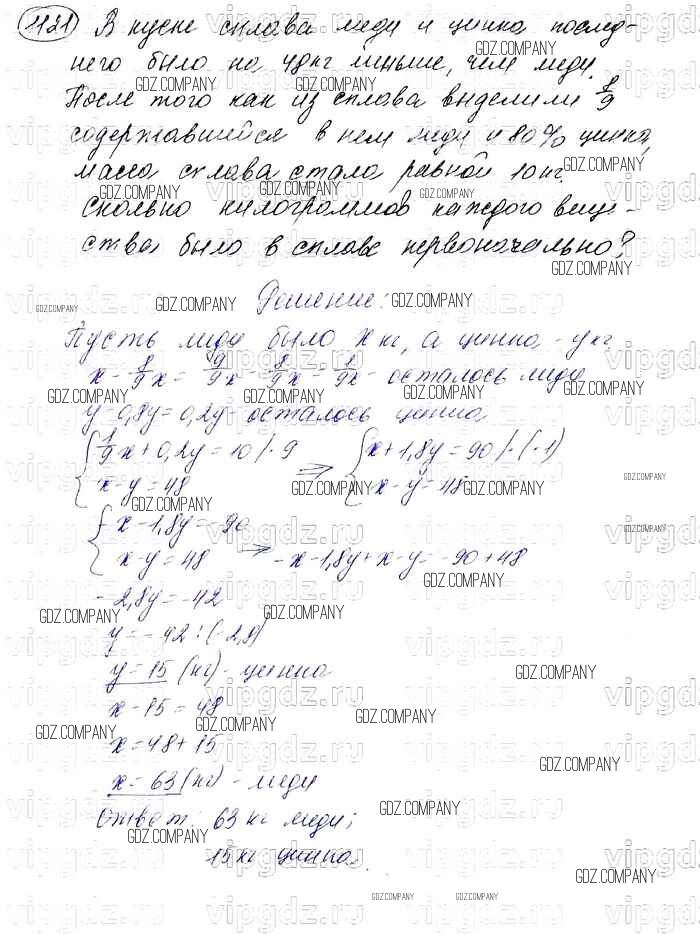 1121 В куске сплава меди и цинка послед-
него было на 48 кг меньше, чем меди.
После того как из сплава выделили 8/9
содержавшейся в нем меди и 80% цинка,
масса сплава стала равной 10 кг.
Сколько килограммов каждого веще-
ства было в сплаве первоначально?
Решение:
Пусть меди было x кг, а цинка - y кг.
x - 8/9 x = 9/9 x - 8/9 x = 1/9 x - осталось меди
y = 0,8y = 0,2y - осталось цинка,
{ 1/9 x + 0,2y = 10 |· 9 ⇒ { x + 1,8y = 90 |·(-1)
x - y = 48 x - y = 48
{ - x - 1,8y = - 90
x - y = 48 ⇒ - x - 1,8y + x - y = - 90 + 48
- 2,8y = - 42
y = - 42 : (- 2,8)
y = 15 (кг) - цинка
x - 15 = 48
x = 48 + 15
x = 63 (кг) - меди
Ответ: 63 кг меди;
15 кг цинка.
GDZ.COMPANY
vipgdz.ru